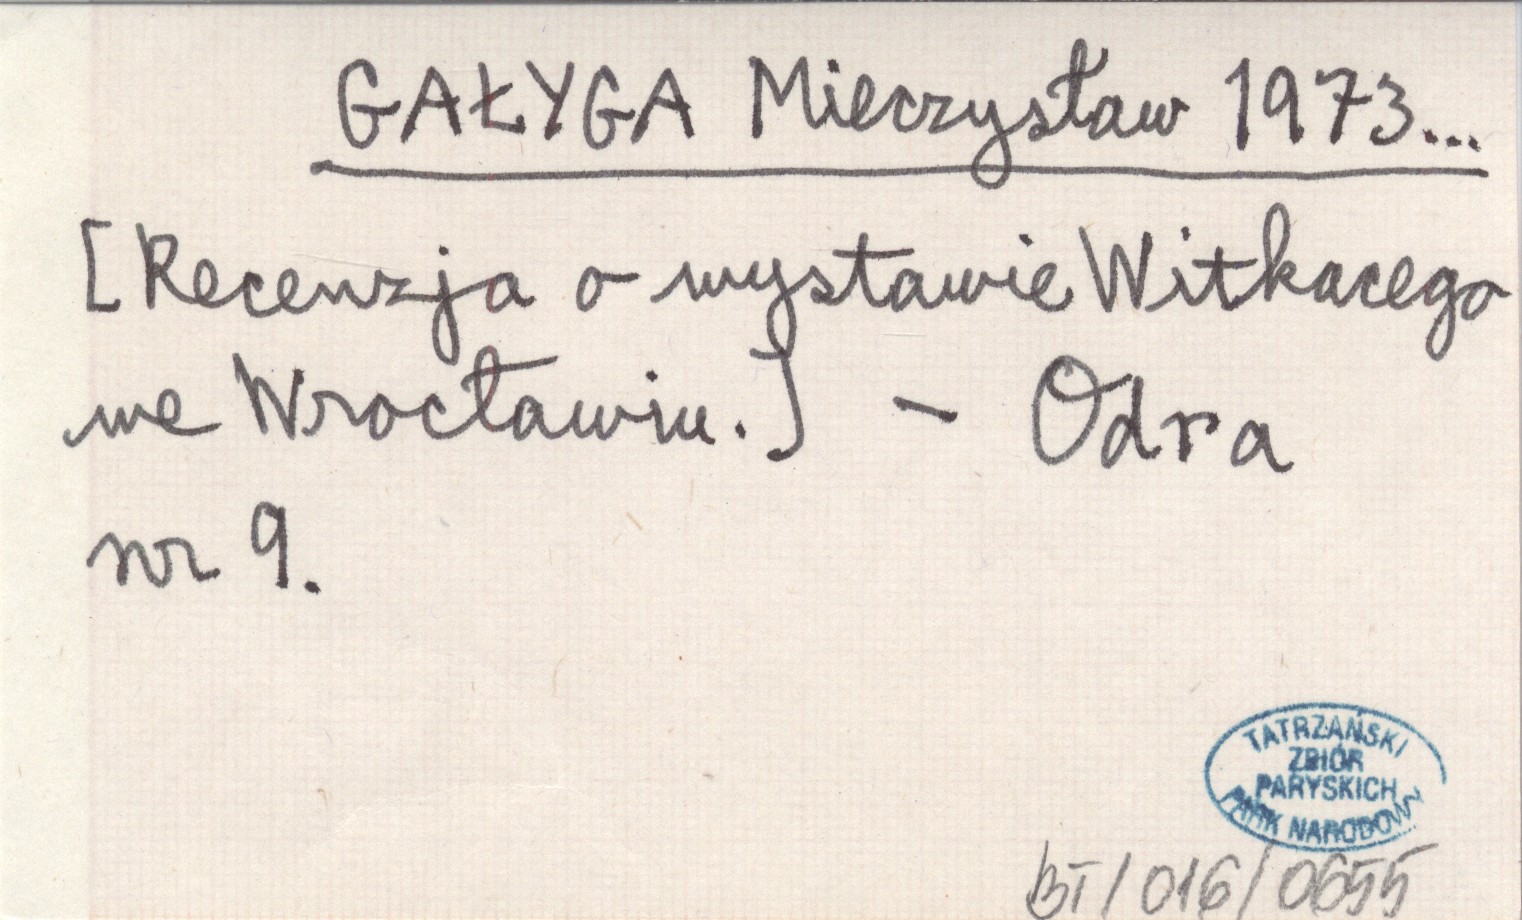 GAŁYGA Mieczysław 1973...
[Recenzja o wystawie Witkacego
we Wrocławiu.] - Odra
nr 9.
TATRZAŃSKI
ZBIÓR
PARYSKICH
PARK NARODOWY
BT/016/0655